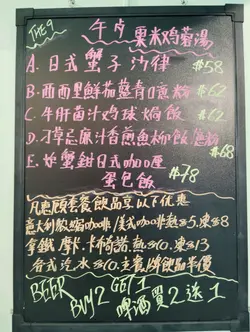 THE 9
午市 粟米鸡蓉湯
A. 日式蟹子沙律 $58
B. 西西里鮮茄藍青口意粉 $62
C. 牛肝菌汁鸡球焗飯 $62
D. 刁草忌廉汁香煎魚柳飯/意粉 $68
E. 炸蟹鉗日式咖喱
蛋包飯 $78
凡惠顧套餐飲品享以下優惠
意大利濃縮咖啡/美式咖啡熱$5.凍$8
拿鐵.摩卡.卡布諾.熱$10.凍$13
各式汽水$10.主餐/牌飲品半價
BEER BUY 2 GET 1
啤酒買2送1